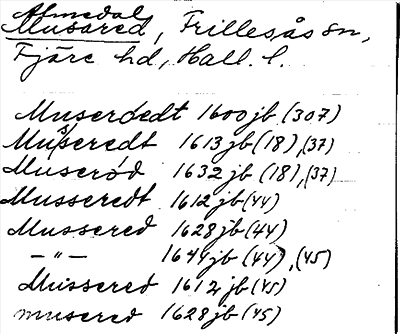 Almedal
Musared, Frillesås sn,
Fjäre hd, Hall. l.
Muserödt 1600 jb (307)
Musseredt 1613 jb (18), (37)
Museröd 1632 jb (18), (37)
Musseredt 1612 jb (44)
Mussered 1628 jb (44)
– " – 1644 jb (44), (45)
Mussered 1612 jb (45)
musered 1628 jb (45)